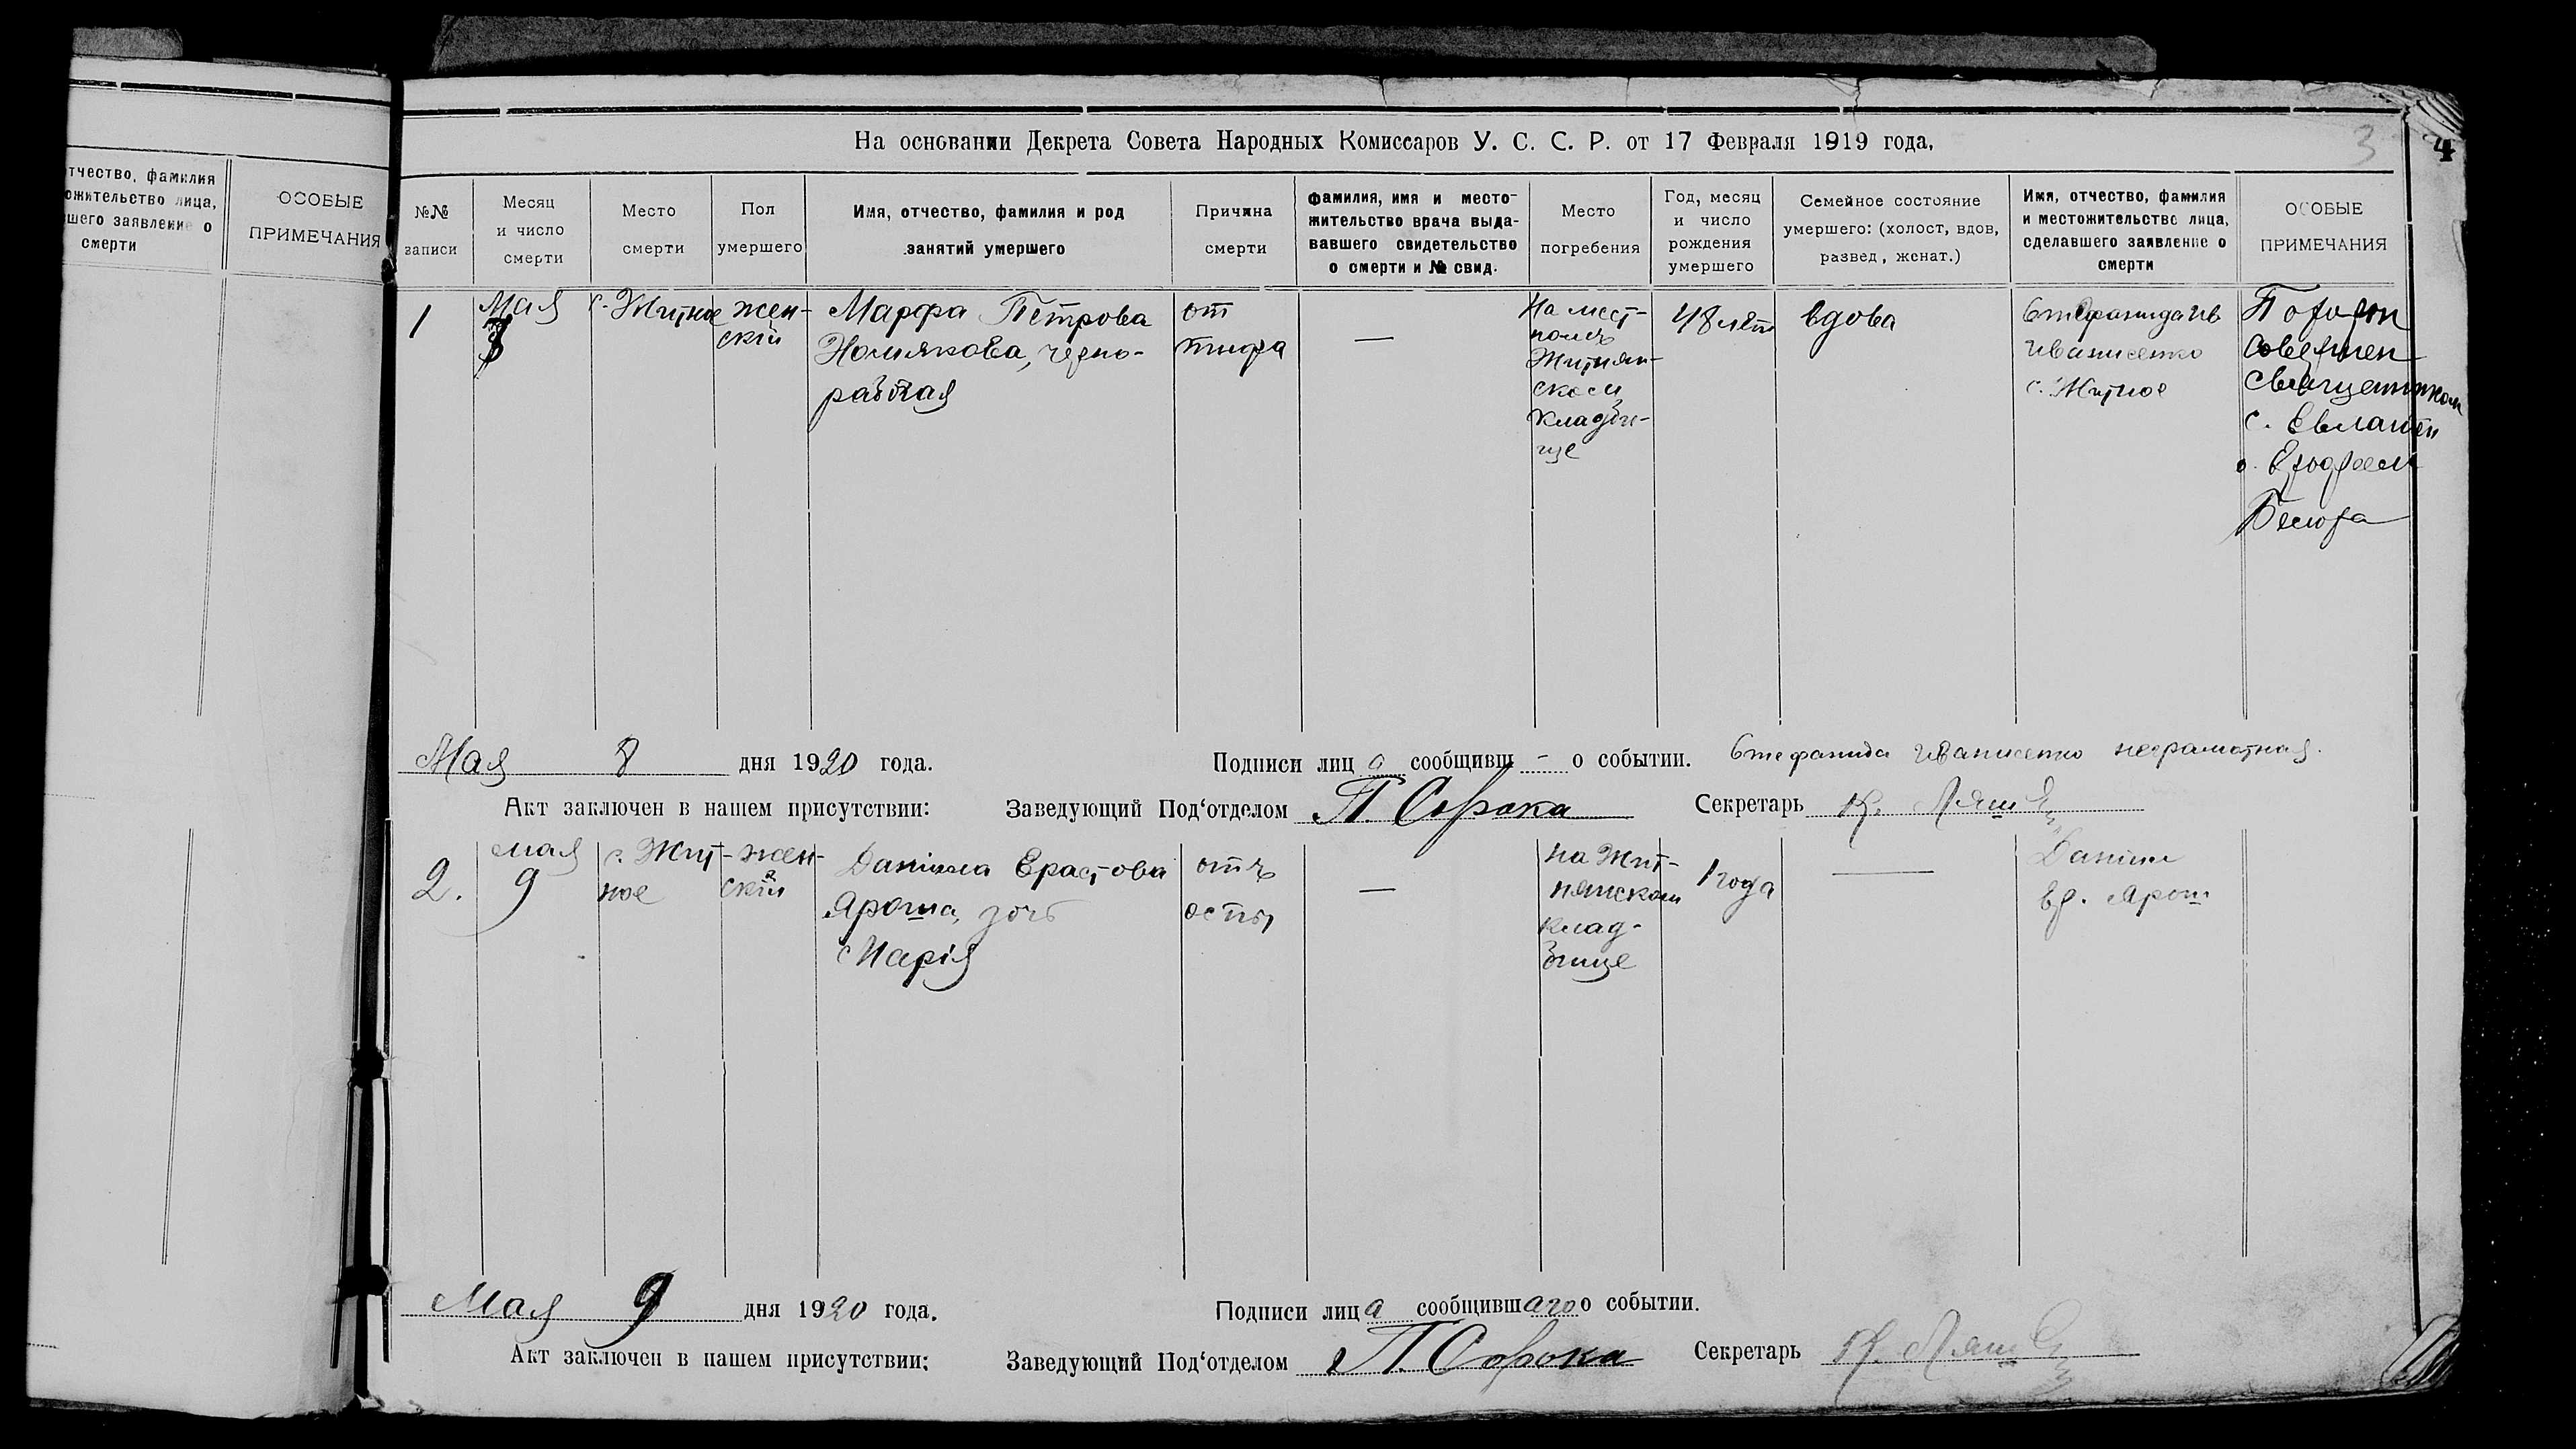 отчество, фамилия
ожительство лица,
вшего заявление о
смерти
ОСОБЫЕ
ПРИМЕЧАНИЯ
На основании Декрета Совета Народных Комиссаров У. С. С. Р. от 17 Февраля 1919 года,
3
4
№№
записи
Месяц
и число
смерти
Место
смерти
Пол
умершего
Имя, отчество, фамилия и род
занятий умершего
Причина
смерти
фамилия, имя и место-
жительство врача выда-
вавшего свидетельство
о смерти и № свид.
Место
погребения
Год, месяц
и число
рождения
умершего
Семейное состояние
умершего: (холост, вдов,
развед, женат.)
Имя, отчество, фамилия
и местожительство лица,
сделавшего заявление о
смерти
ОСОБЫЕ
ПРИМЕЧАНИЯ
1
Мая
с. Житное
жен-
скій
Марфа Петрова
чернo-
рабочая
от
тифа
—
На мест-
номъ
Житнян-
ском
кладби-
ще
48 лет
вдова
Стефанида Ив
Иванисенко
с. Житное
совершен
священником
с.
Мая 8 дня 1920 года.
Подписи лиц а сообщивш - о событии. Стефанида Иванисенко неграмотная.
Акт заключен в нашем присутствии: Заведующий Под'отделом П. Сорока Секретарь К.
2.
мая
9
с. Жит-
ное
жен-
скій
Даніила Ерастова
Яроша, дочь
Марія
отъ
оспы
—
на Жит-
нянском
клад-
бище
1 года
—
Даніил
Ер. Ярош
Мая 9 дня 1920 года.
Подписи лица сообщившаго о событии.
Акт заключен в нашем присутствии: Заведующий Под'отделом П. Сорока Секретарь К.